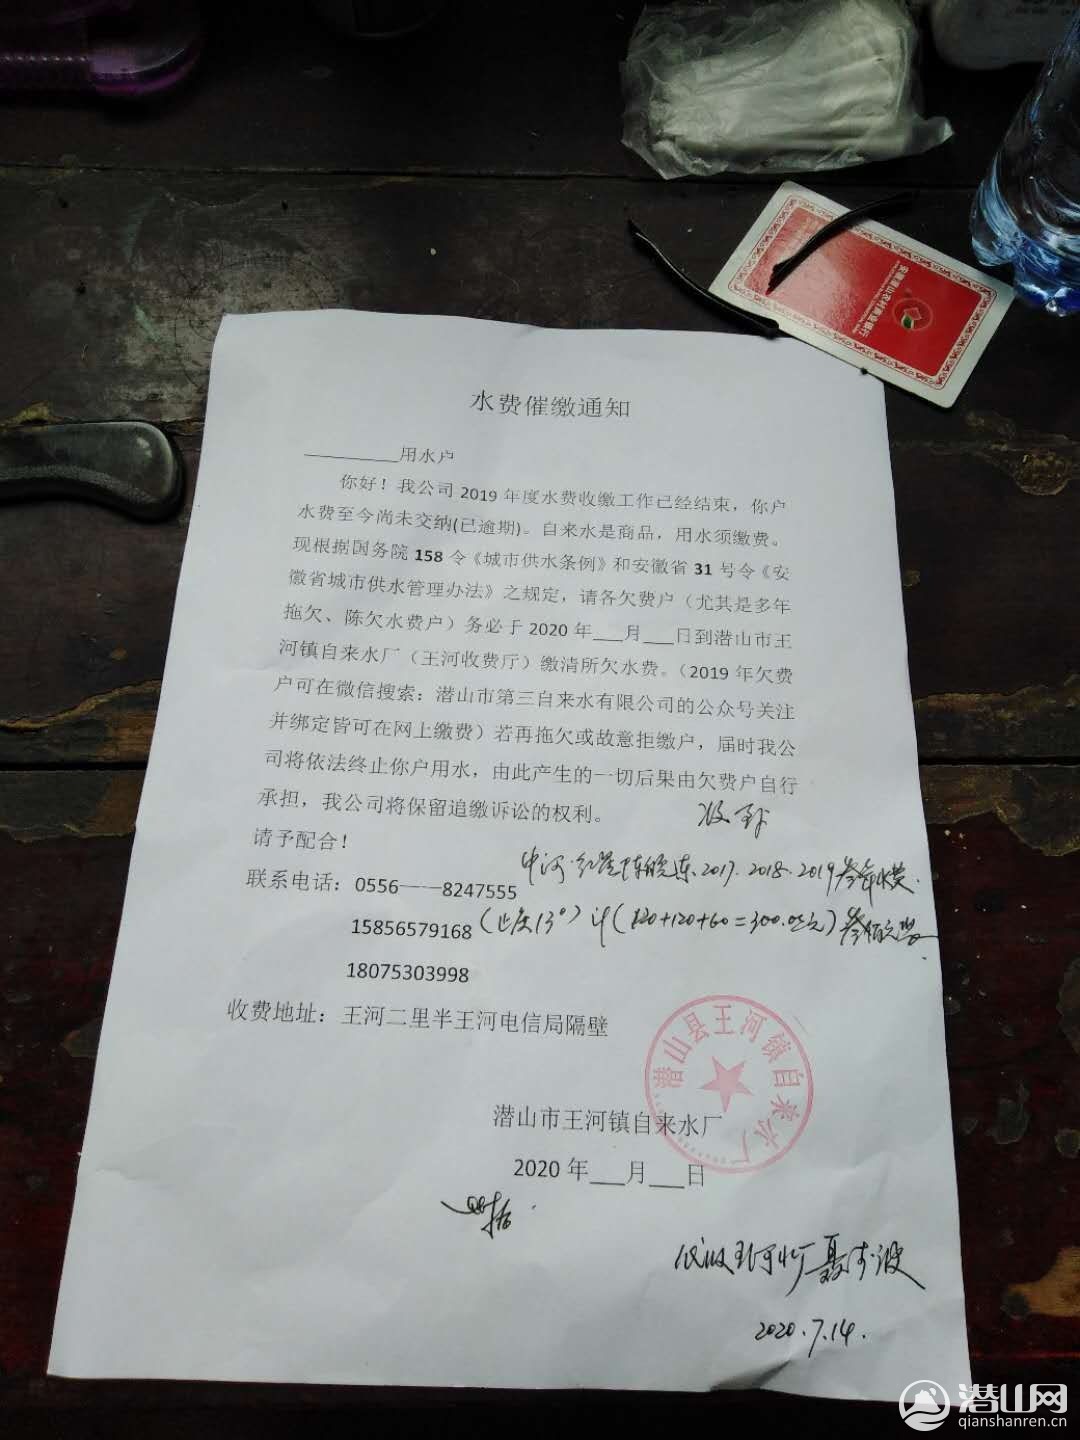 安徽潜山农村商业银行
水费催缴通知
________用水户
你好！我公司 2019 年度水费收缴工作已经结束，你户
水费至今尚未交纳(已逾期)。自来水是商品，用水须缴费。
现根据国务院 158 令《城市供水条例》和安徽省 31 号令《安
徽省城市供水管理办法》之规定，请各欠费户（尤其是多年
拖欠、陈欠水费户）务必于 2020 年___月___日到潜山市王
河镇自来水厂（王河收费厅）缴清所欠水费。（2019 年欠费
户可在微信搜索：潜山市第三自来水有限公司的公众号关注
并绑定皆可在网上缴费）若再拖欠或故意拒缴户，届时我公
司将依法终止你户用水，由此产生的一切后果由欠费户自行
承担，我公司将保留追缴诉讼的权利。
请予配合！
中河·红星陈晓东·2017·2018·2019叁年水费.
联系电话：0556——8247555
15856579168
(止度13°) 计(120+120+60=300.00元)
18075303998
收费地址：王河二里半王河电信局隔壁
潜山县王河镇自来水厂
潜山市王河镇自来水厂
2020 年___月___日
王河水厂
2020.7.14.
潜山网
qianshanren.cn